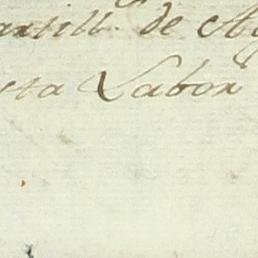 antill. de Ag
cta Labor